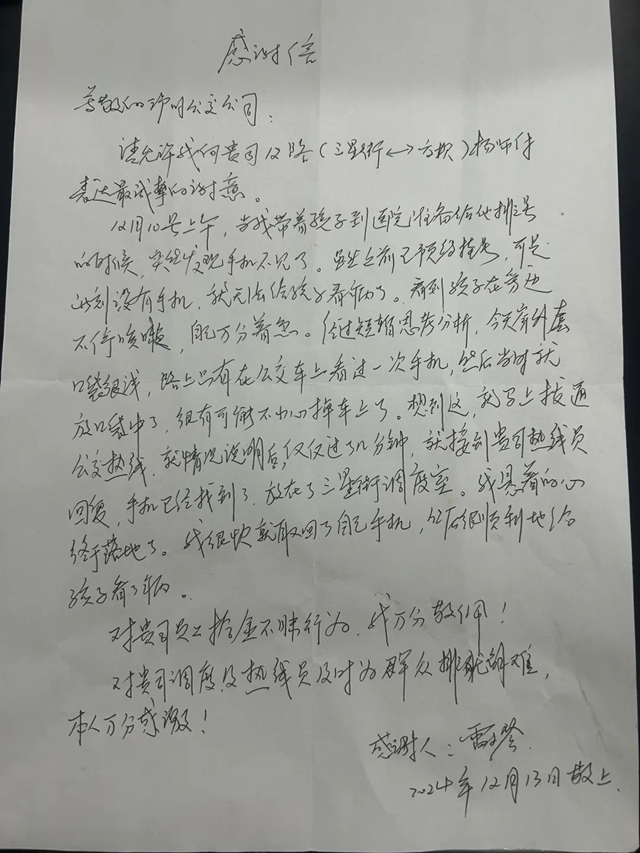 感谢信
尊敬的珍明公交公司：
请允许我向贵司12路（三星街↔方欣）杨师付
表达最诚挚的谢意。
12月10号上午，当我带着孩子到医院准备给他排号
的时候，突然发现手机不见了。虽然之前已预约挂号，可是
此刻没有手机，就无法给孩子看病了。看到孩子在旁边
不停咳嗽，自己万分着急。经过短暂思考分析，今天穿外套
口袋很浅，路上只有在公交车上看过一次手机，然后当时就
放口袋中了，很有可能不小心掉车上了。想到这，我马上拨通
公交热线，就情况说明后，仅仅过了几分钟，就接到贵司热线员
回复，手机已经找到了，放在了三星街调度室。我悬着的心
终于落地了。我很快就取回了自己手机，然后很顺利地给
孩子看了病。
对贵司员工拾金不昧行为，我万分敬佩！
对贵司调度及热线员及时为群众排忧解难，
本人万分感激！
感谢人：雷
2024年12月13日敬上